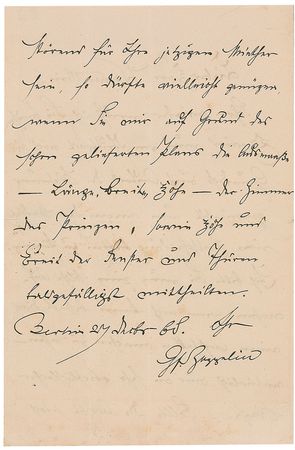 störend für Ihre jetzigen Miether
sein, so dürfte vielleicht genügen
wenn Sie mir auf Grund des
schon gelieferten Plans die Ausmaße
— Länge, Breite, Höhe — der Zimmer
des Prinzen, sowie Höhe und
Breite der Fenster und Thüren
baldgefälligst mittheilten.
Berlin 27 Decbr 68. Ihr
Gf. Zeppelin